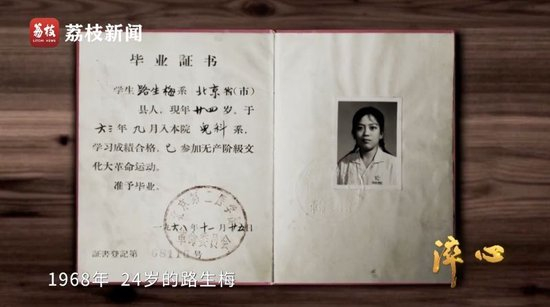 荔枝
LITCHI NEWS
荔枝新闻
毕业証书
学生路生梅系北京省(市)
县人,现年廿四岁,于
六三年九月入本院儿科系,
学习成績合格,已参加无产阶級文
化大革命运动。
准予毕业。
北京第二医学院
革命委员会
一九六八年十一月廿五日
証書登記第68116号
淬心
1968年 24岁的路生梅